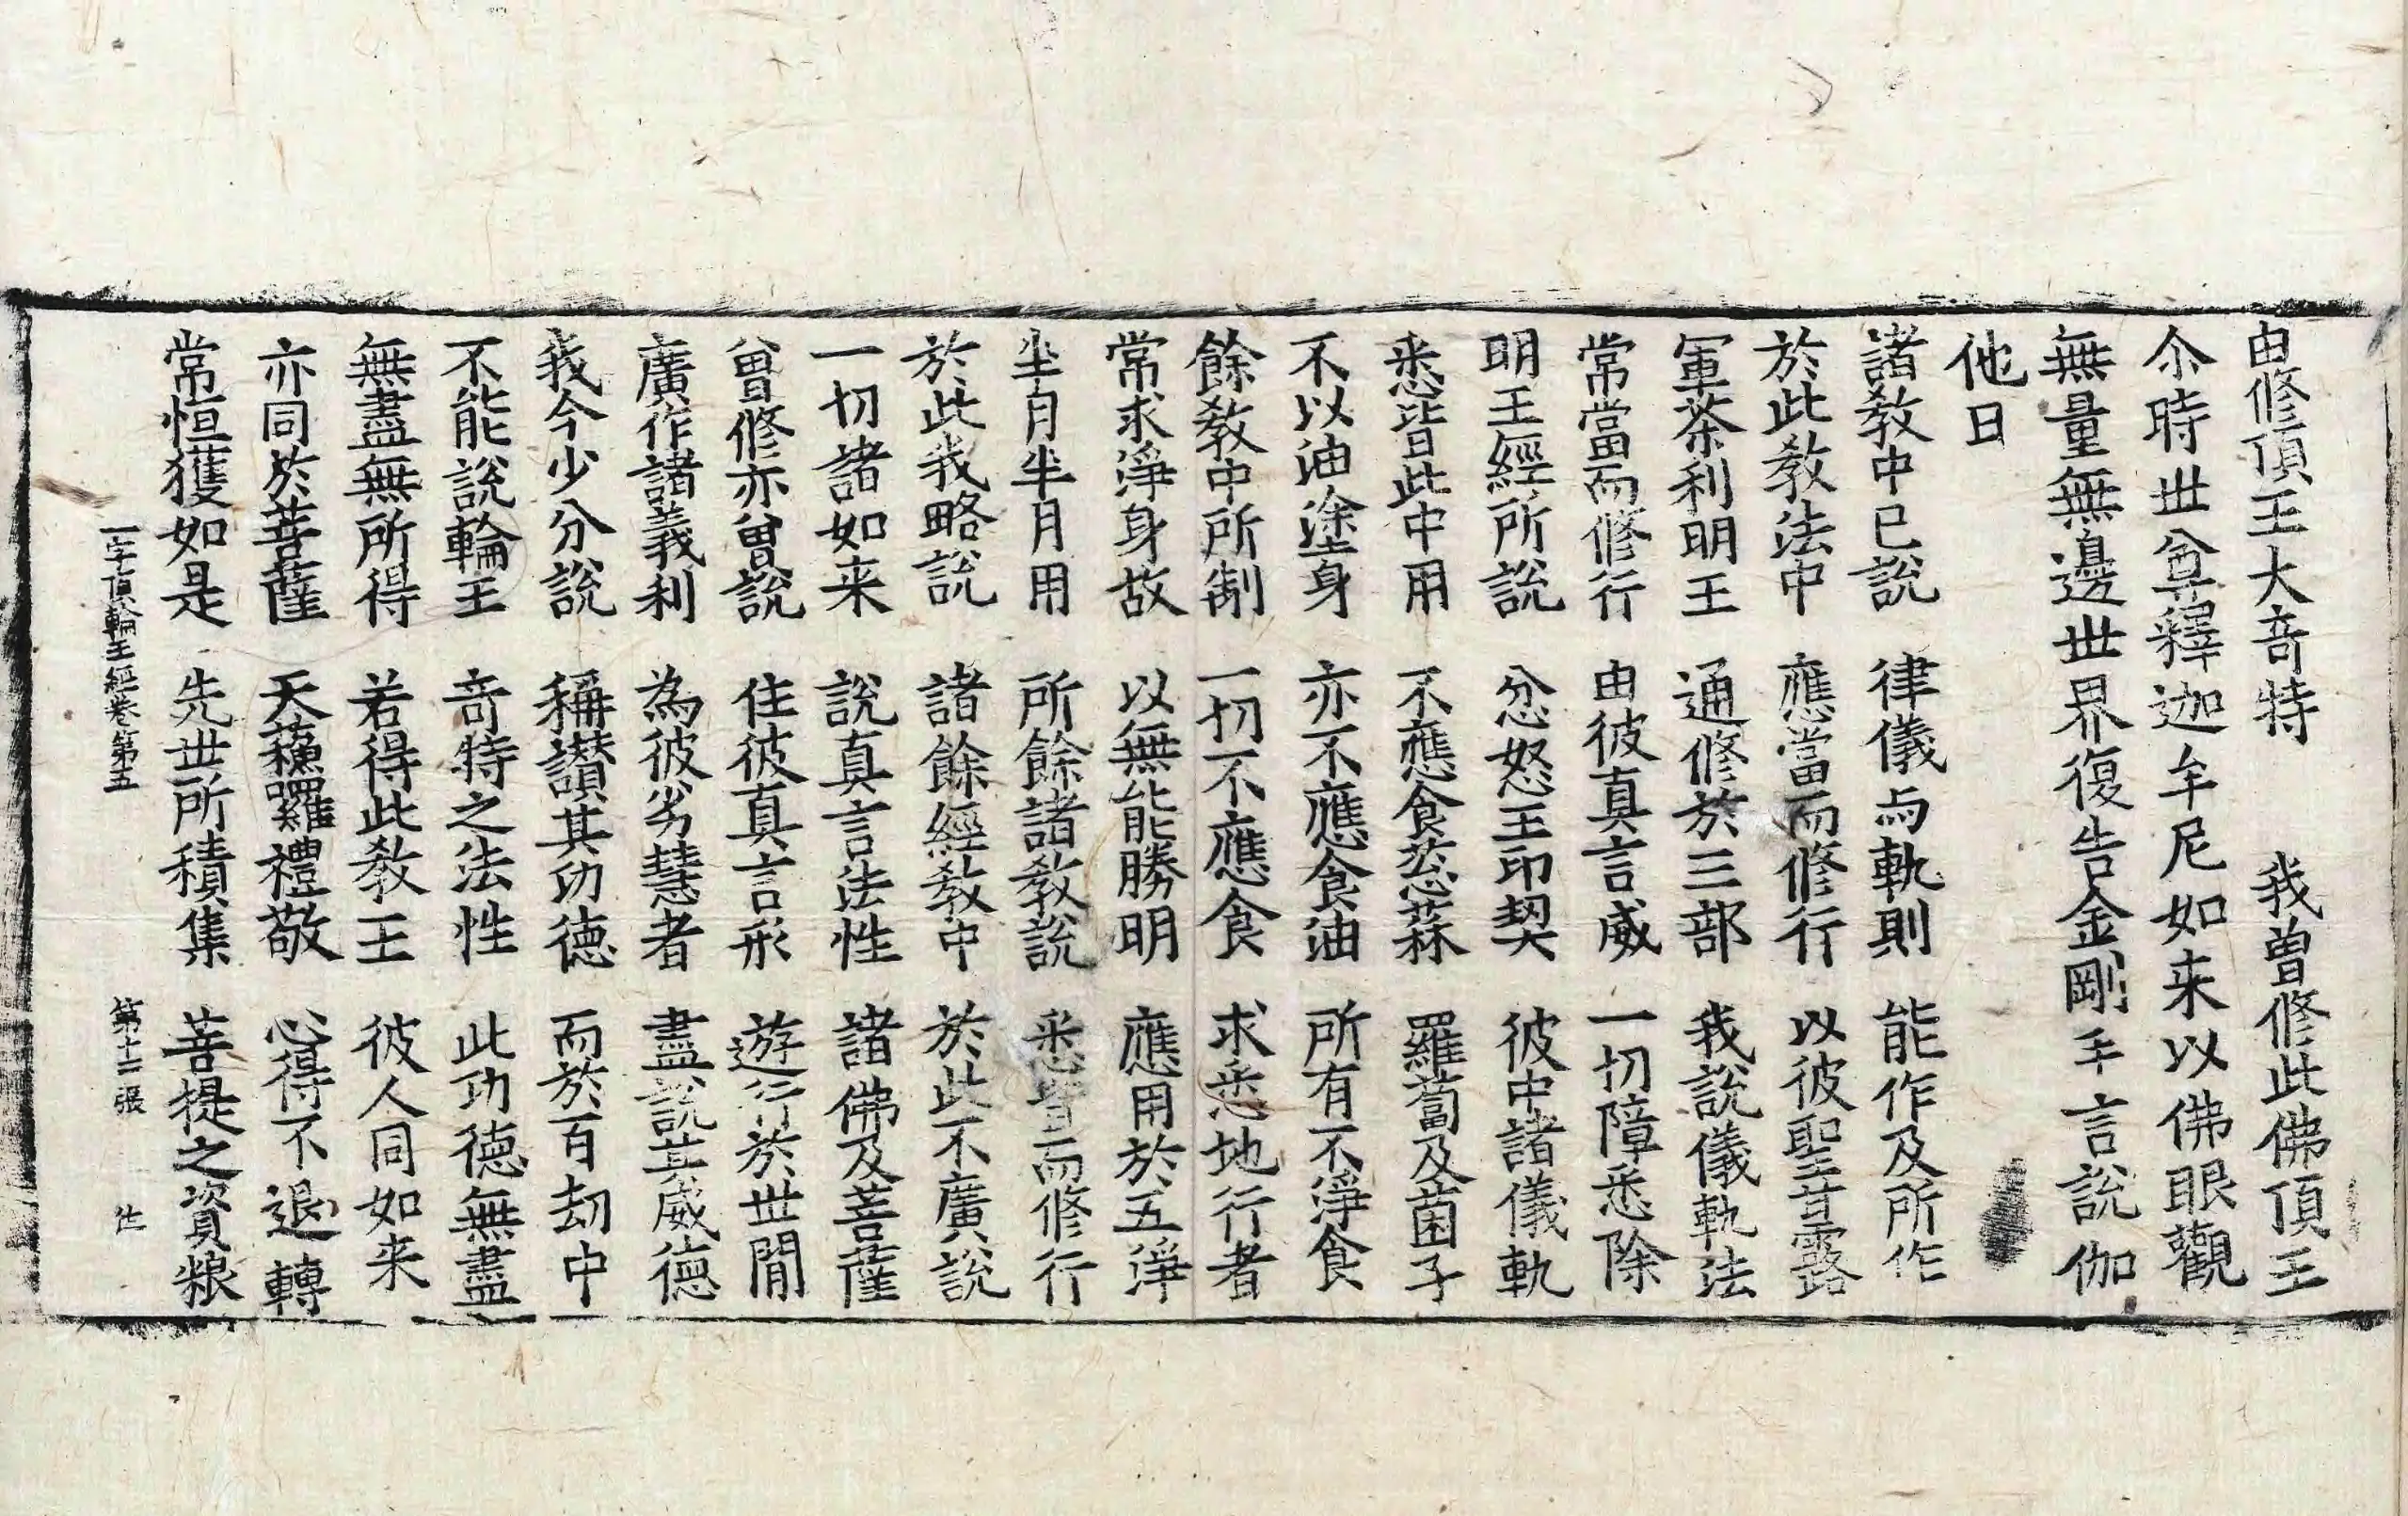 由修頂王大竒特　我曽修此佛頂王
尒時世尊釋迦牟尼如来以佛眼觀
無量無邊世界復告金剛手言說伽
他曰
諸教中已說　律儀与軌則　能作及所作
於此教法中　應當而修行　以彼聖甘露
軍茶利明王　通修於三部　我說儀軌法
常當而修行　由彼真言威　一切障悉除
明王經所說　忿怒王印契　彼中諸儀軌
悉皆此中用　不應食葱蒜　羅蔔及菌子
不以油塗身　亦不應食油　所有不淨食
餘教中所制　一切不應食　求悉地行者
常求淨身故　以無能勝明　應用於五淨
半月半月用　所餘諸教說　悉皆而修行
於此我略說　諸餘經教中　於此不廣說
一切諸如来　說真言法性　諸佛及菩薩
曽修亦曽說　住彼真言形　遊行於世間
廣作諸義利　為彼劣慧者　盡說其威德
我今少分說　稱讚其功德　而於百劫中
不能說輪王　竒特之法性　此功德無盡
無盡無所得　若得此教王　彼人同如来
亦同於菩薩　天蘓囉禮敬　心得不退轉
常恒獲如是　先世所積集　菩提之資粮
一字頂輪王經卷第五　第十二張